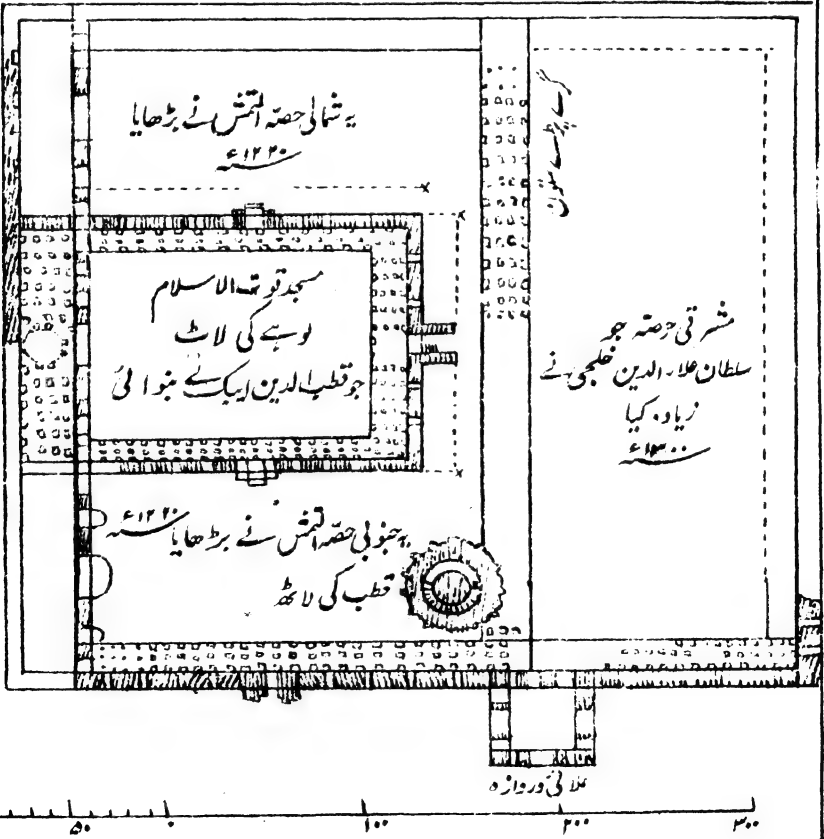 یہ شمالی حصہ التمش نے بڑھایا
۱۲۲۰ء
گرے پڑے ستون
مسجد قوت الاسلام
لوہے کی لاٹ
جو قطب الدین ایبک نے بنوائی
مشرقی حصہ جو
سلطان علاءالدین خلجی نے
زیادہ کیا
۱۳۰۰ء
یہ جنوبی حصہ التمش نے بڑھایا ۱۲۲۰ء
قطب کی لاٹھ
علائی دروازہ
۵۰ ۰ ۱۰۰ ۲۰۰ ۳۰۰